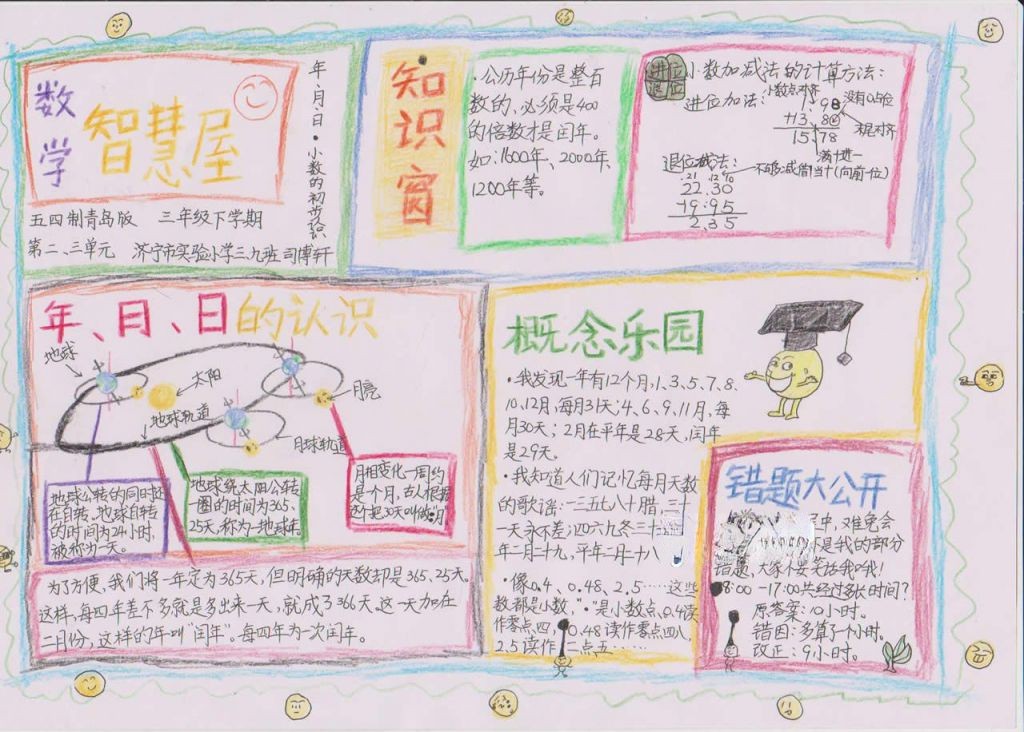 数学
智慧屋
年、月、日·小数的初步认识
五四制青岛版 三年级下学期
第二、三单元 济宁市实验小学三九班 司博轩
知识窗
·公历年份是整百
数的,必须是400
的倍数才是闰年。
如:1600年、2000年、
1200年等。
进位
退位
小数加减法的计算方法:
小数点对齐
进位加法:
1.98
没有0占位
+13.80
末尾对齐
15.78
满十进一
退位减法:
不够减借1当十(向前一位)
21 12 10
22.30
-19.95
2.35
年、日、日的认识
地球
太阳
地球轨道
月亮
月球轨道
地球公转的同时还
在自转,地球自转
的时间为24小时,
被称为一天。
地球绕太阳公转
一圈的时间为365.
25天,称为一地球年。
月相变化一周约
是个月,古人根据
这个把30天叫做1月
为了方便,我们将一年定为365天,但明确的天数却是365.25天。
这样,每四年差不多就是多出来一天,就成了366天。这一天加在
二月份,这样的7年叫“闰年”。每四年为一次闰年。
概念乐园
·我发现一年有12个月,1、3、5、7、8、
10、12月,每月31天;4、6、9、11月,每
月30天;2月在平年是28天,闰年
是29天。
·我知道人们记忆每月天数
的歌谣:一三五七八十腊,三十
一天永不差;四六九冬三十
年二月二十九,平年二月二十八
·像0.4、0.48、2.5……这些
数都是小数,“.”是小数点,0.4读
作零点四,0.48读作零点四八,
2.5读作二点五……
错题大公开
中,难免会
是我的部分
错题,大家不要笑话我哦!
8:00-17:00共经过多长时间?
原答案:10小时。
错因:多算了1个小时。
改正:9小时。